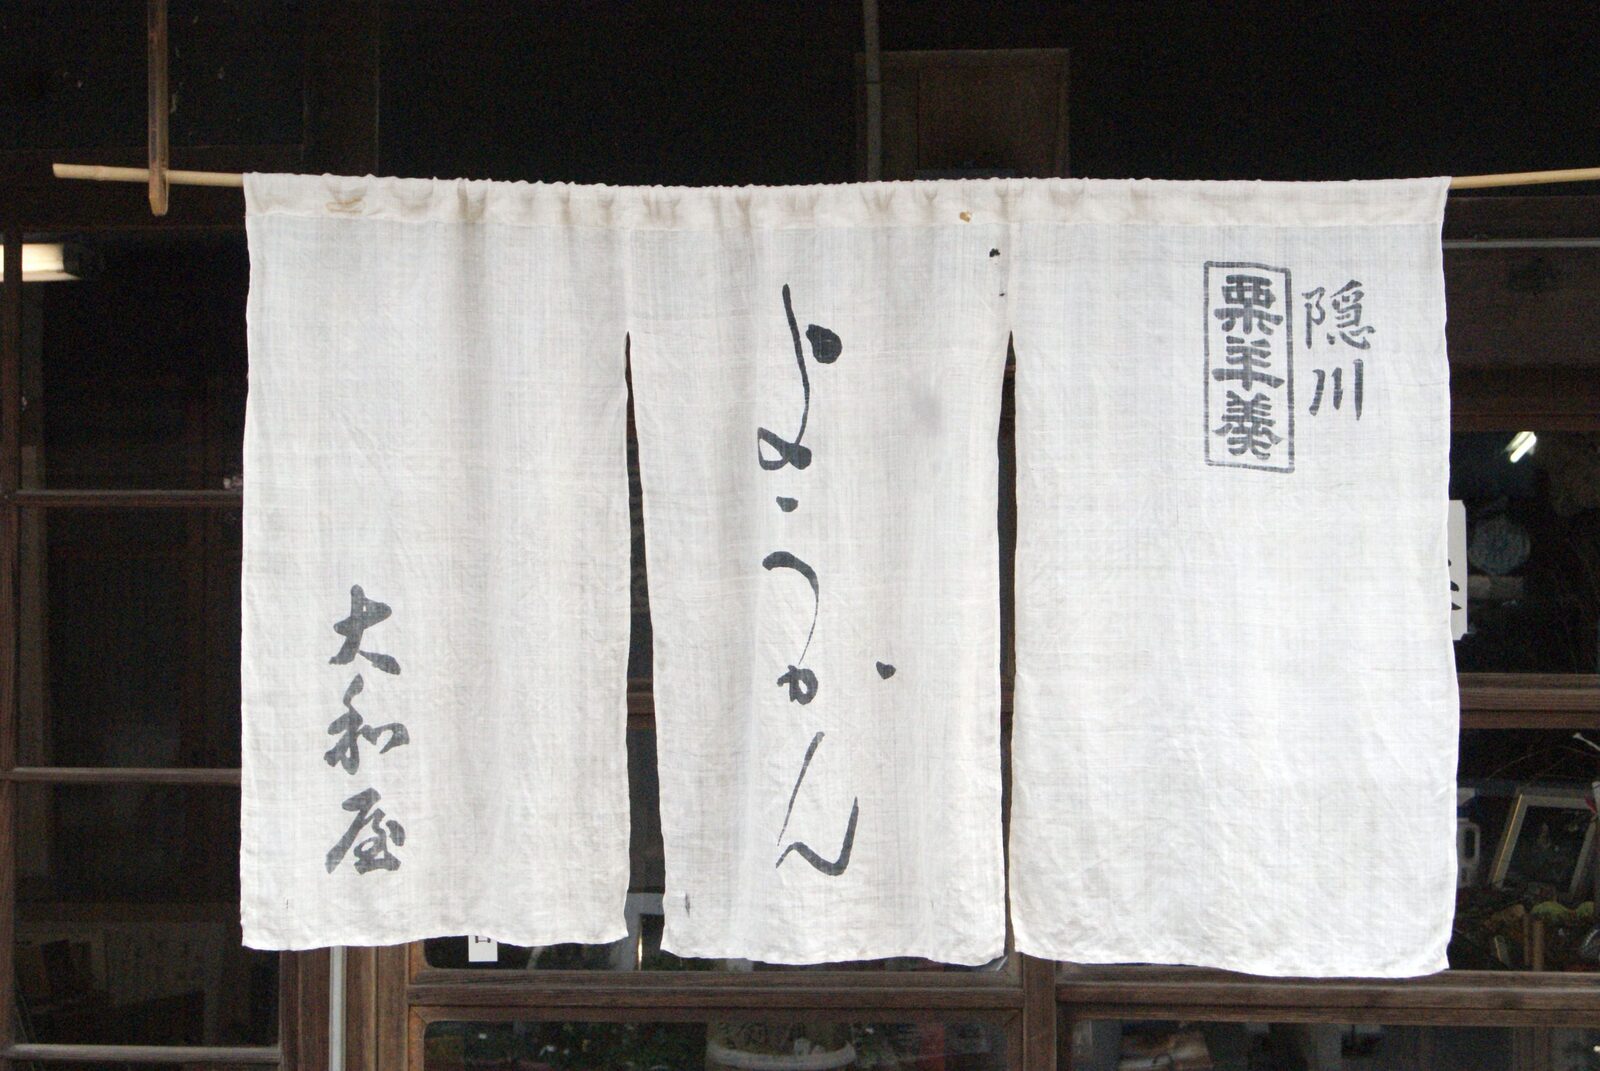 隠川
栗羊羹
ようかん
大和屋